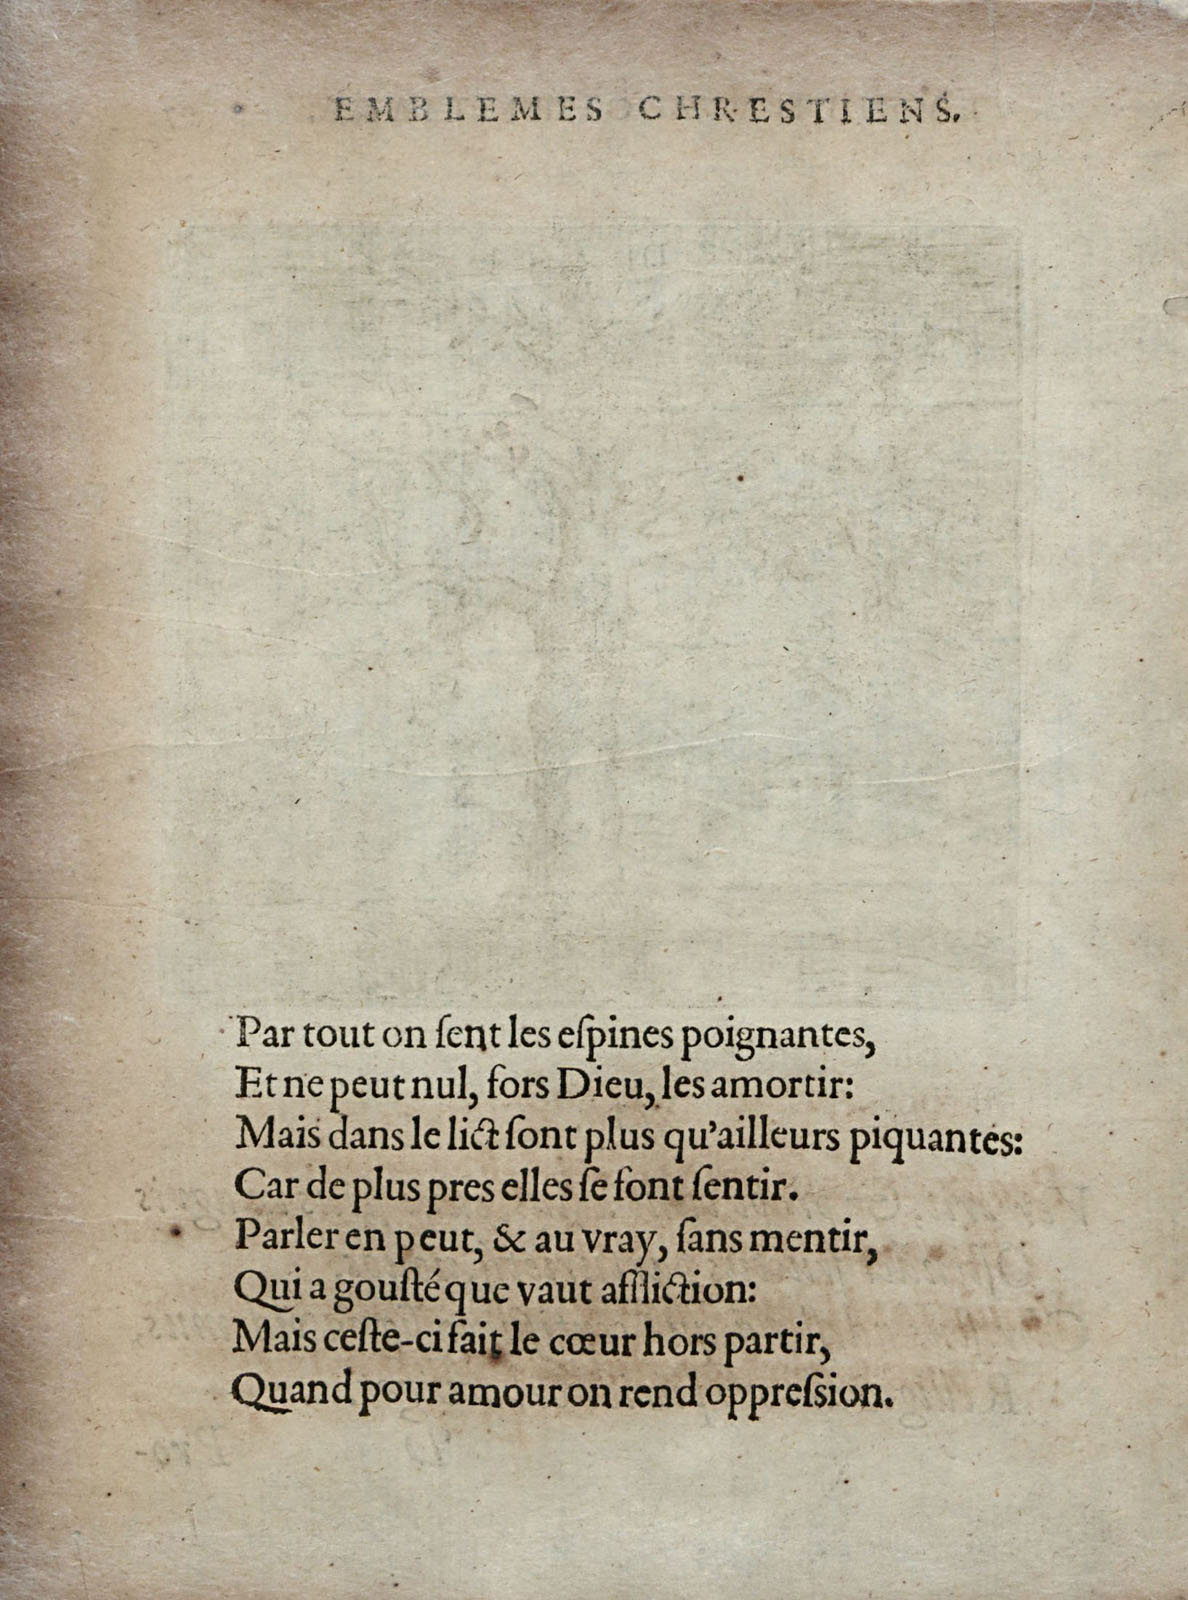 EMBLEMES CHRESTIENS.
Par tout on ſent les eſpines poignantes,
Et ne peut nul, fors Dieu, les amortir:
Mais dans le lict ſont plus qu'ailleurs piquantes:
Car de plus pres elles ſe font ſentir.
Parler en peut, & au vray, ſans mentir,
Qui a gouſté que vaut affliction:
Mais ceſte-ci fait le cœur hors partir,
Quand pour amour on rend oppreſsion.